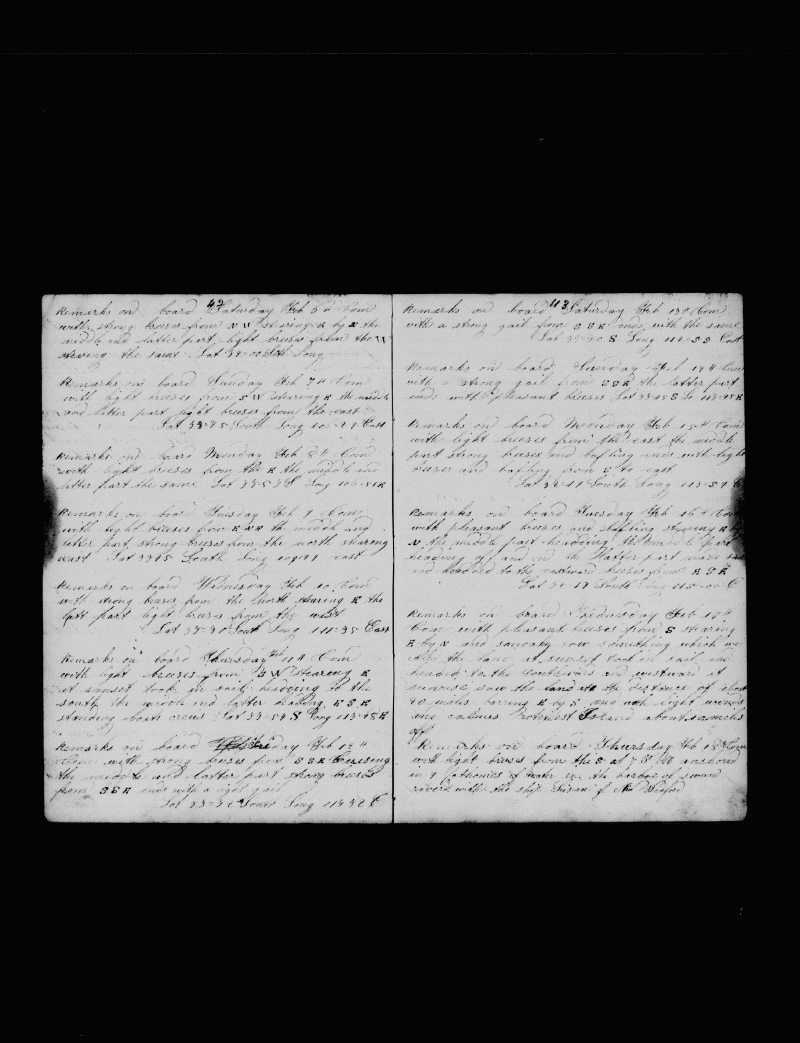 42
Remarks on board Saturday Feb 6d Com
with strong breses from N W stearing E by N the
middle and latter part light breses from the
stearing the same Lat 33-00 Sth Long
Remarks on board Sunday Feb 7th Com
with light breses from S W stearing E the middle
and latter part light breses from the east
Lat 33-45 South Long 106-47 East
Remarks on board Monday Feb 8th Com
with light breses from the E the middle and
latter part the same Lat 33-52 S Long 106-51 E
Remarks on board Tuesday Feb 9 Com
with light breses from the middle and
latter part strong breses from the north stearing
east Lat 33-45 South Long 109-47 east
Remarks on board Wednesday Feb 10 Com
with strong breses from the North stearing E the
latt part light breses from the west
Lat 33-30 South Long 111-35 East
Remarks on board Thursday Feb 11th Com
with light breses from S W stearing E
at sunset took in sail heading to the
south the middle and latter heading E S E
standing boats crews Lat 33-54 S Long 113-48 E
Remarks on board day Feb 12th
Com with strong breses from S S E Cruising
the middle and latter part strong breses
from S S E ends with a light gail
Lat 33-32 South Long 114-32 E
43
Remarks on board Saturday Feb 13d Com
with a strong gail from S S E ends with the same
Lat 33-20 S Long East
Remarks on board Sunday Feb 14th Com
with a strong gail from S S E the latter part
ends with pleasant breses Lat 33-15 S Lo 113-45 E
Remarks on board Monday Feb 15th Com
with light breses from the east the middle
part strong breses and baffling ends with light
breses and baffling from S to east
Lat 32-41 South Long 113-59 E
Remarks on board Tuesday Feb 16th Com
with pleasant breses and baffling stearing E by
N the middle part heading the
heading of and on the latter part made sail
and headed to the eastward breses from E S E
Lat South Long E
Remarks on board Wednesday Feb 17th
Com with pleasant breses from S stearing
E by N and saw something which we
the land at sunset took in sail and
headed to the southward and westward at
sunrise saw the land at the distance of about
40 miles barring E by S and with light winds
and calmes rotenest Island about miles
off
Remarks on board Thursday Feb 18 Com
with light breses from the S at 7 P M anchored
in 9 fathomes of water in the harbor of swan
river with the ship Susan of New Bedford